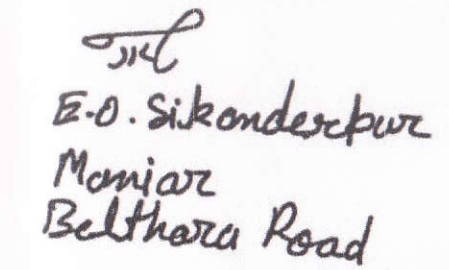 E.O. Sikanderpur
Maniar
Belthara Road